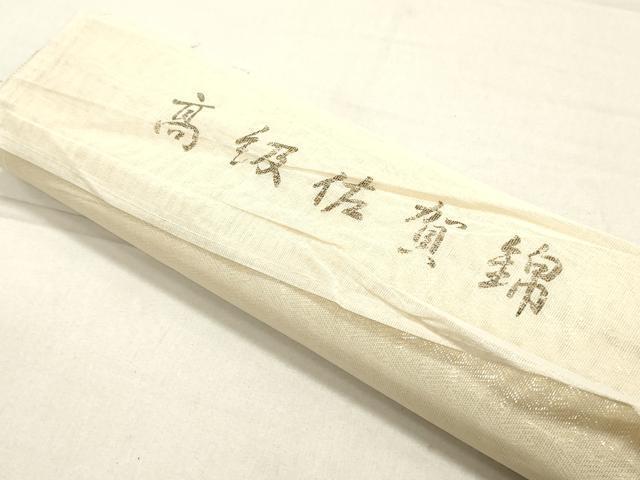 高級佐賀錦